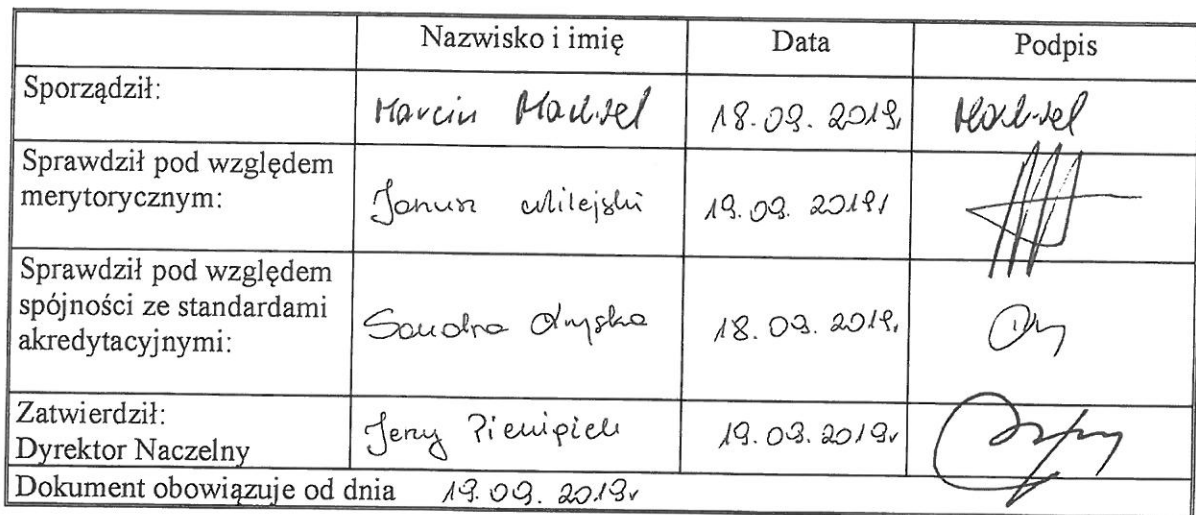 Nazwisko i imię Data Podpis
Sporządził: Marcin 18.09.2019r
Sprawdził pod względem
merytorycznym: Janusz Milejski 19.09.2019r
Sprawdził pod względem
spójności ze standardami
akredytacyjnymi: Sandra 18.09.2019r
Zatwierdził:
Dyrektor Naczelny Jerzy 19.09.2019r
Dokument obowiązuje od dnia 19.09.2019r